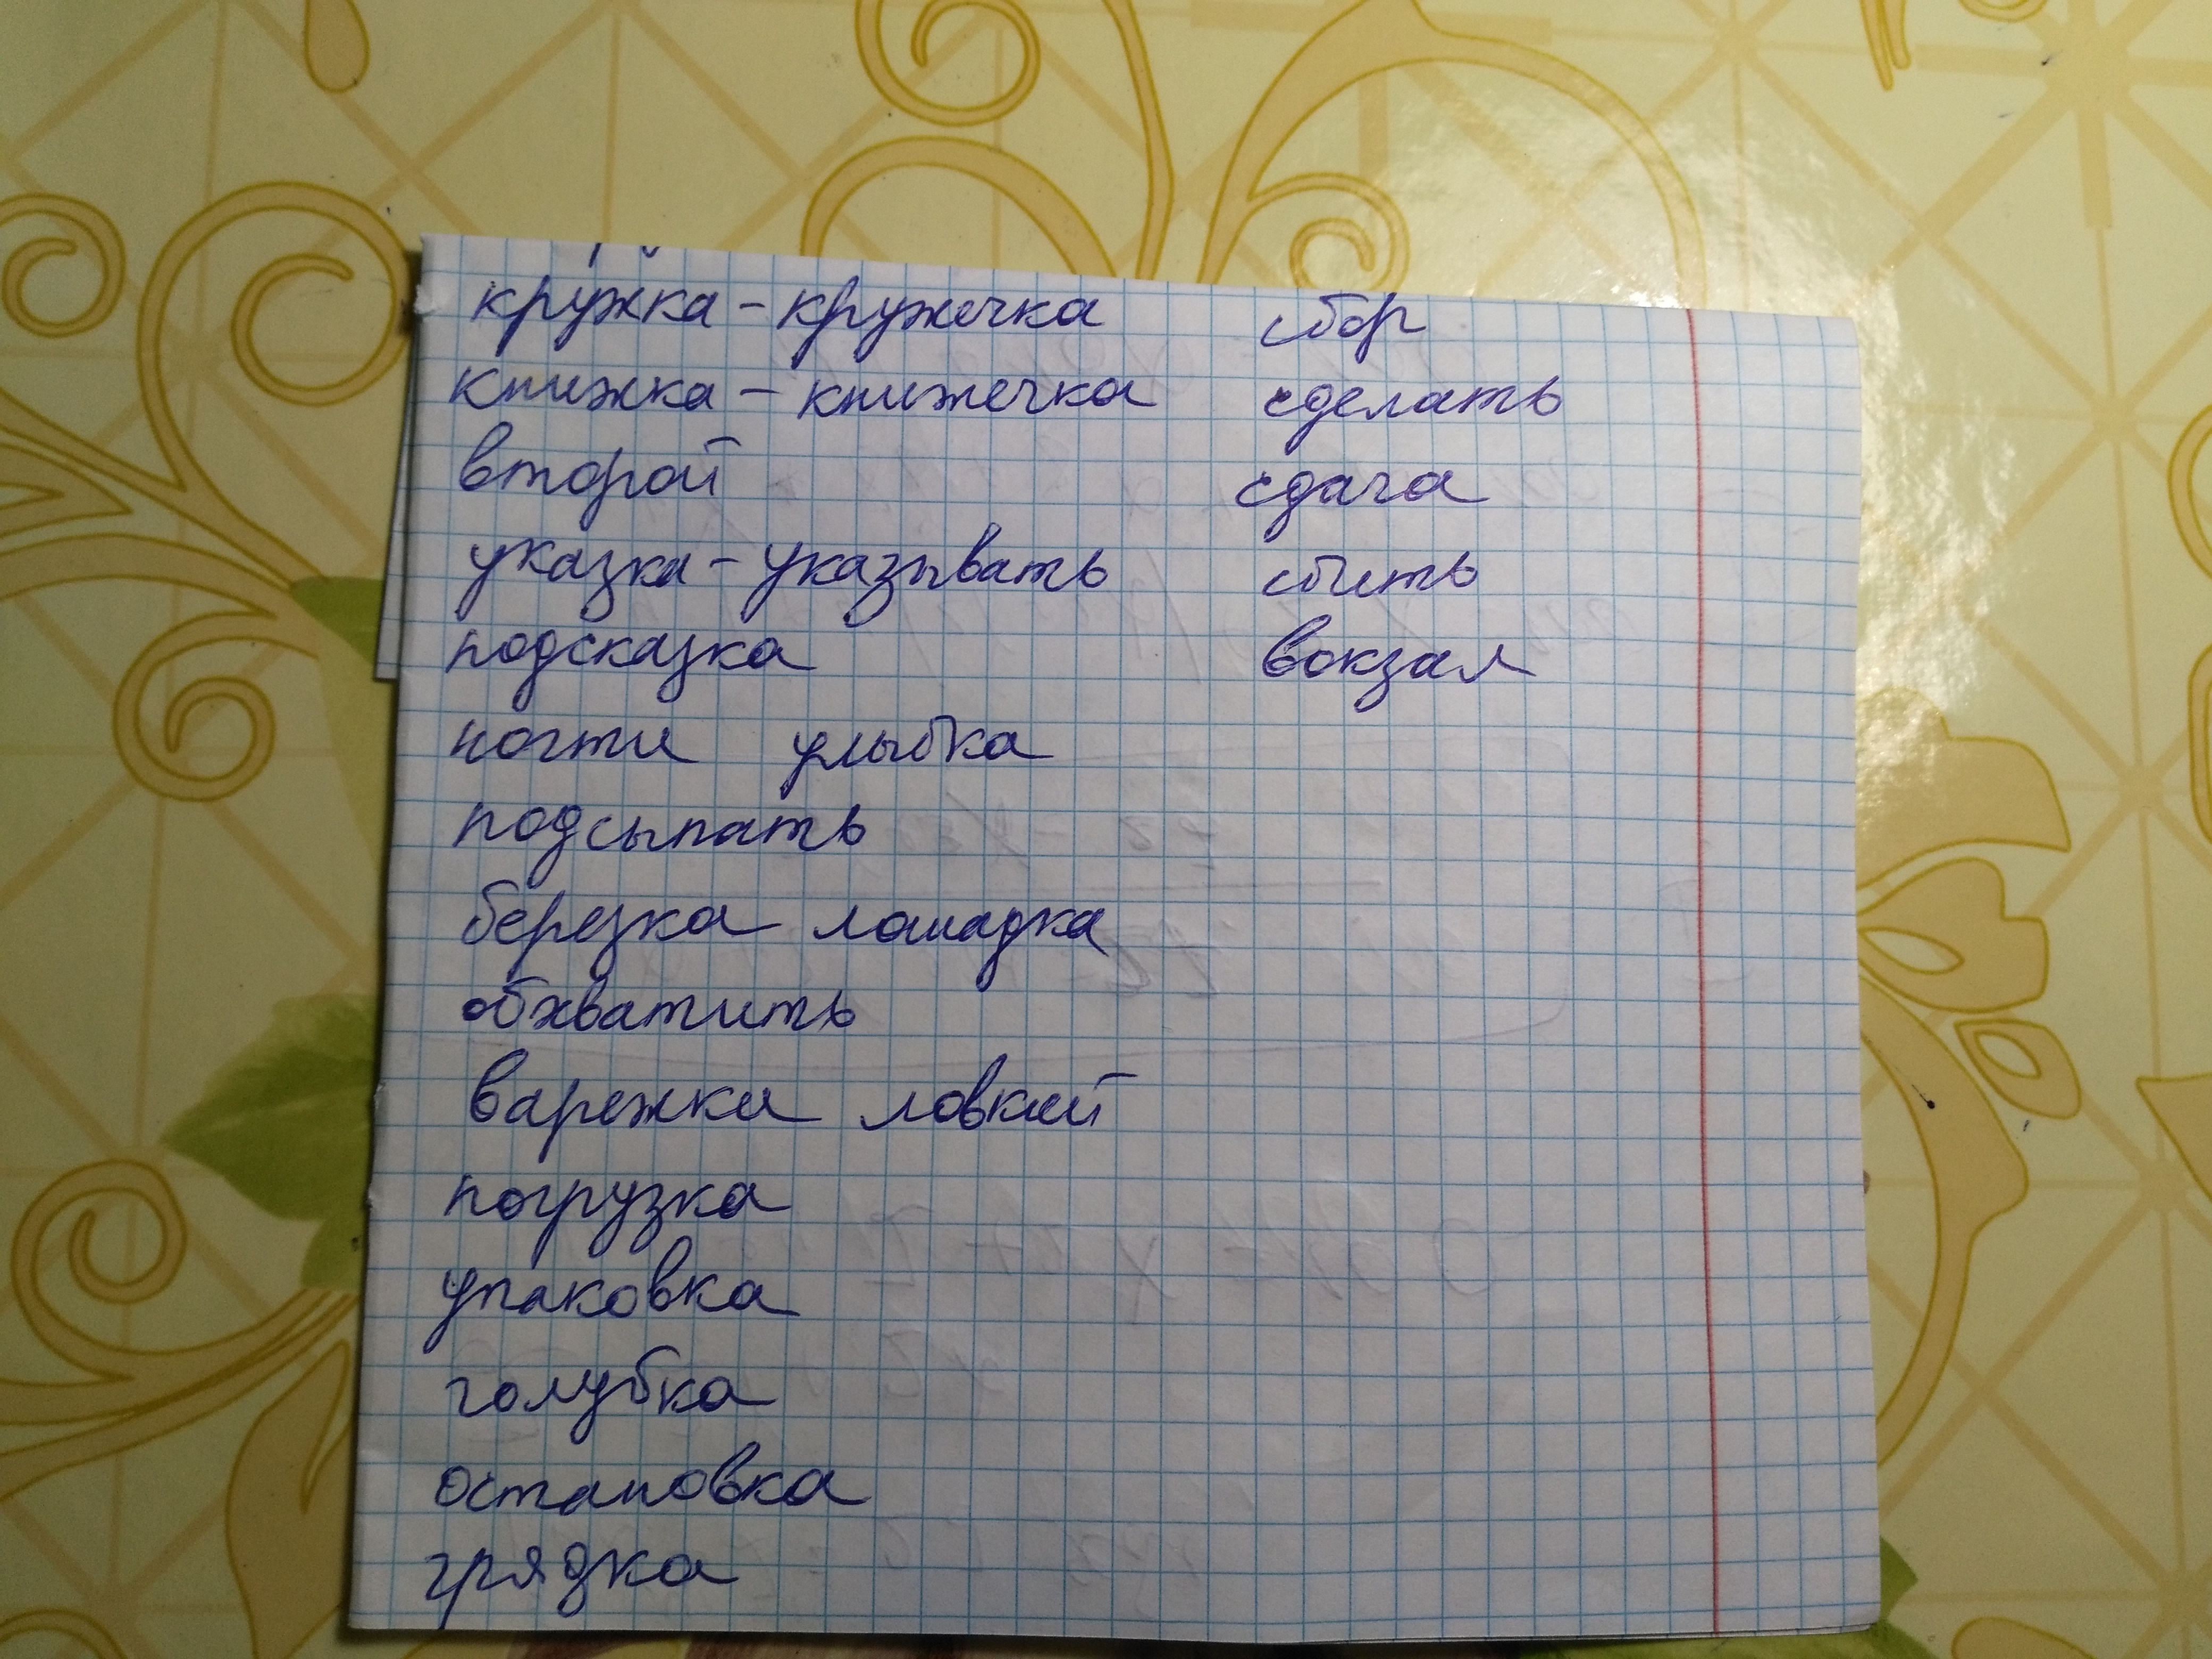 кружка - кружечка
книжка - книжечка
второй
указка - указывать
подсказка
ногти улыбка
подсыпать
березка лошадка
обхватить
варежки ловкий
погрузка
упаковка
голубка
остановка
грядка
сбор
сделать
сдача
сбить
вокзал